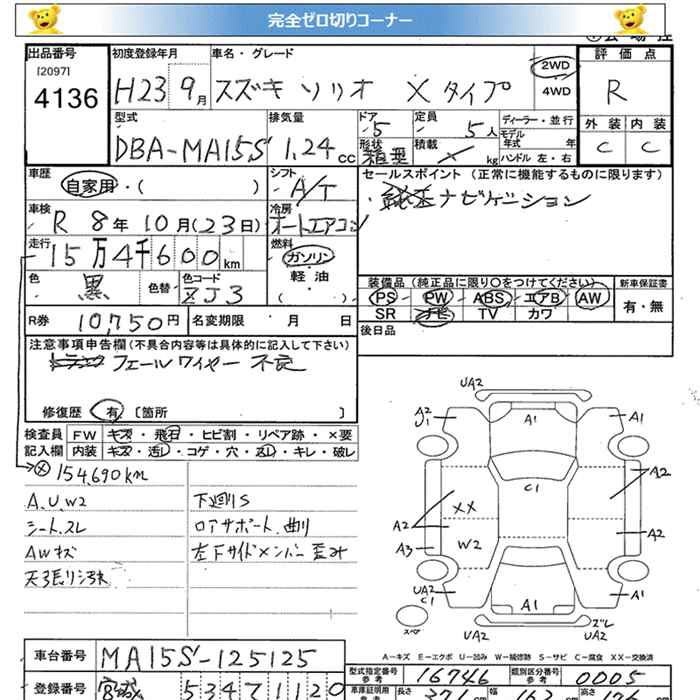 完全ゼロ切りコーナー
出品番号 初度登録年月 車名・グレード 評価点
[2097]
4136 H23 9月 スズキ ソリオ Xタイプ 2WD 4WD R
型式 排気量 ドア 定員 ディーラー・並行 外装 内装
DBA-MA15S 1.24cc 5 5人 モデル年式 年 C C
形状 箱型 積載 kg ハンドル 左・右
車歴 シフト セールスポイント (正常に機能するものに限ります)
自家用・( ) A/T ナビゲーション
車検 冷房
R 8年10月(23日) オートエアコン
走行 燃料
15万4千600km ガソリン
軽油
( )
色 色替 色コード 装備品 (純正品に限り○をつけてください) 新車保証書
黒 ZJ3 PS PW ABS エアB AW 有・無
SR ナビ TV カワ
R券 10,750円 名変期限 月 日 後日品
注意事項申告欄 (不具合内容等は具体的に記入して下さい)
フェールワイヤー 不良
修復歴 有 [箇所 ]
検査員 FW キズ・飛石・ヒビ割・リペア跡・×要
記入欄 内装 キズ・汚し・コゲ・穴・スレ・キレ・破レ
154,690km
A.U.W2 下廻りS
シートスレ ロアサポート曲り
AWキズ 左下サイドメンバー歪み
天張り汚れ
UA2
A2 U1 A1 A1
C1
XX A2
A2
A3 W2 A2
UA2 C1 A1 A1
スペア ズレ
UA2 UA2
A―キズ E―エクボ U―凹み W―補修跡 S―サビ C―腐食 XX―交換済
車台番号 MA15S-125125
型式指定番号 参考 16746 類別区分番号 参考 0005
登録番号 宮城 534 1120
車庫証明用 参考 長さ 371cm 幅 162cm 高さ 176cm